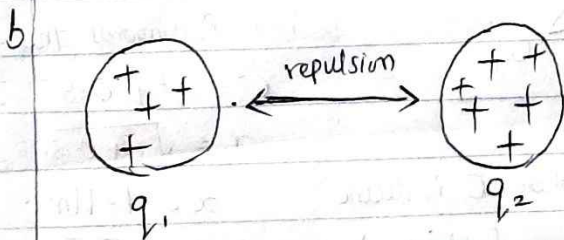 b
repulsion
+ + + +
+ + + + + +
q₁
q₂